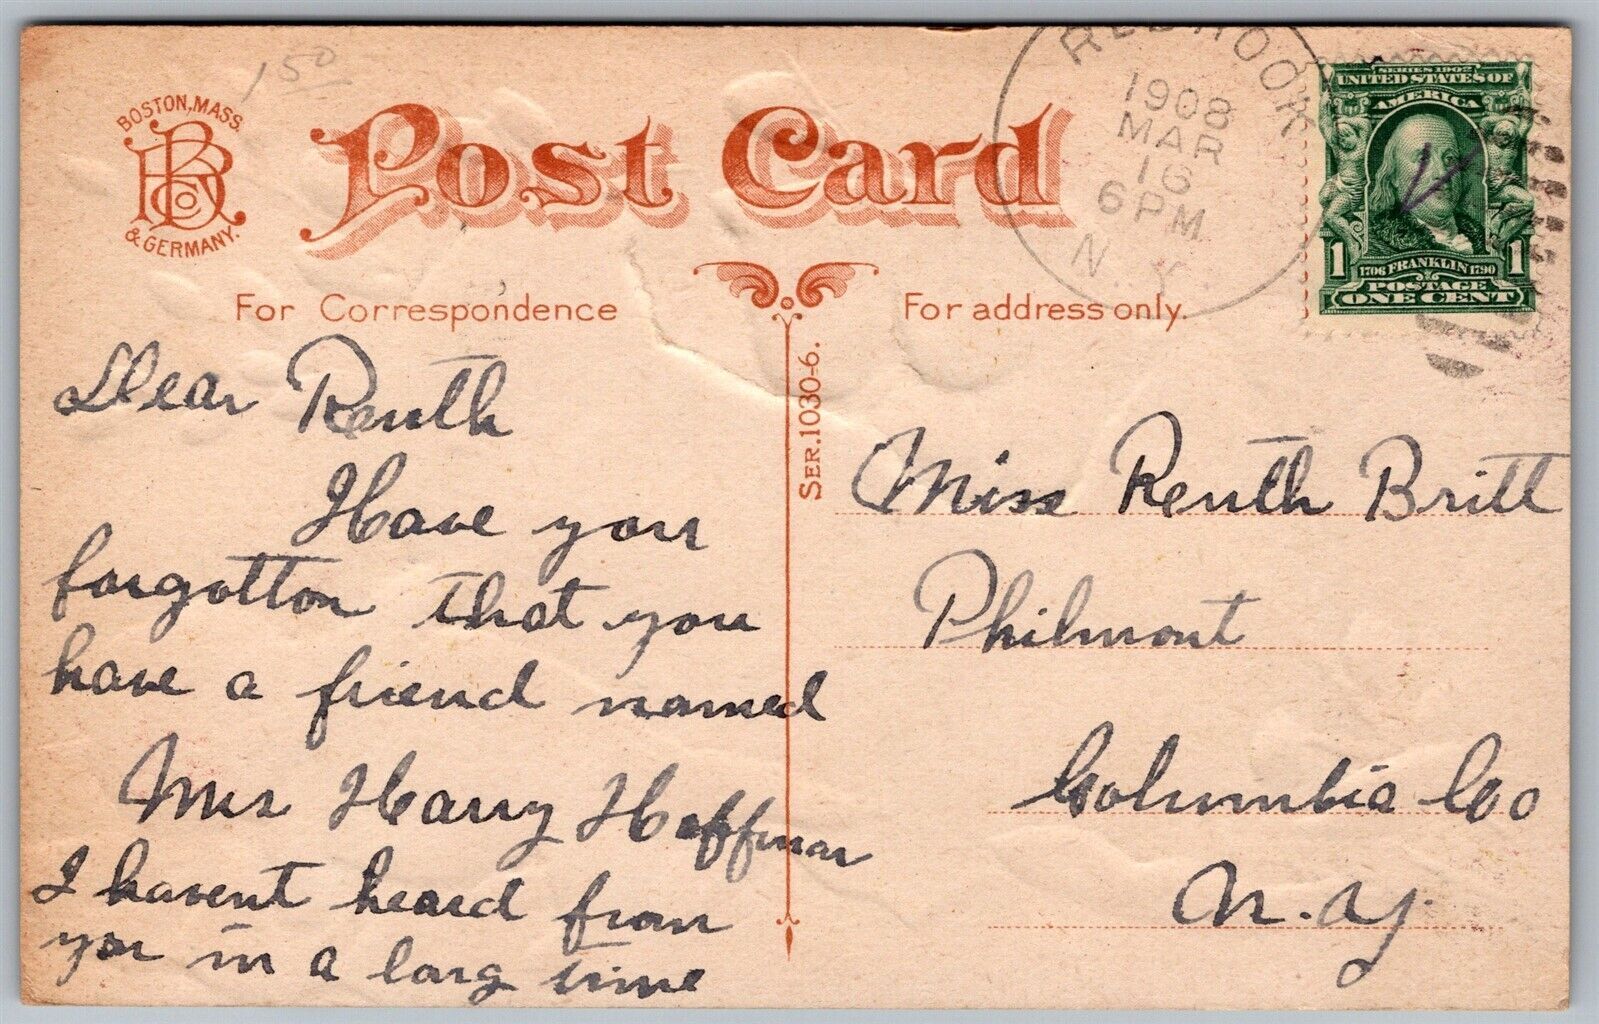 150
BOSTON, MASS.
BRCo
& GERMANY.
Post Card
RED HOOK
1908
MAR
16
6 PM
N.Y.
SERIES 1902
UNITED STATES OF
AMERICA
1706 FRANKLIN 1790
1 1
POSTAGE
ONE CENT
For Correspondence
For address only.
SER. 1030-6.
Dear Reuth
Have you
forgotton that you
have a friend named
Mrs Harry Hoffman
I havent heard from
you in a long time
Miss Reuth Britt
Philmont
Columbia Co
N.Y.